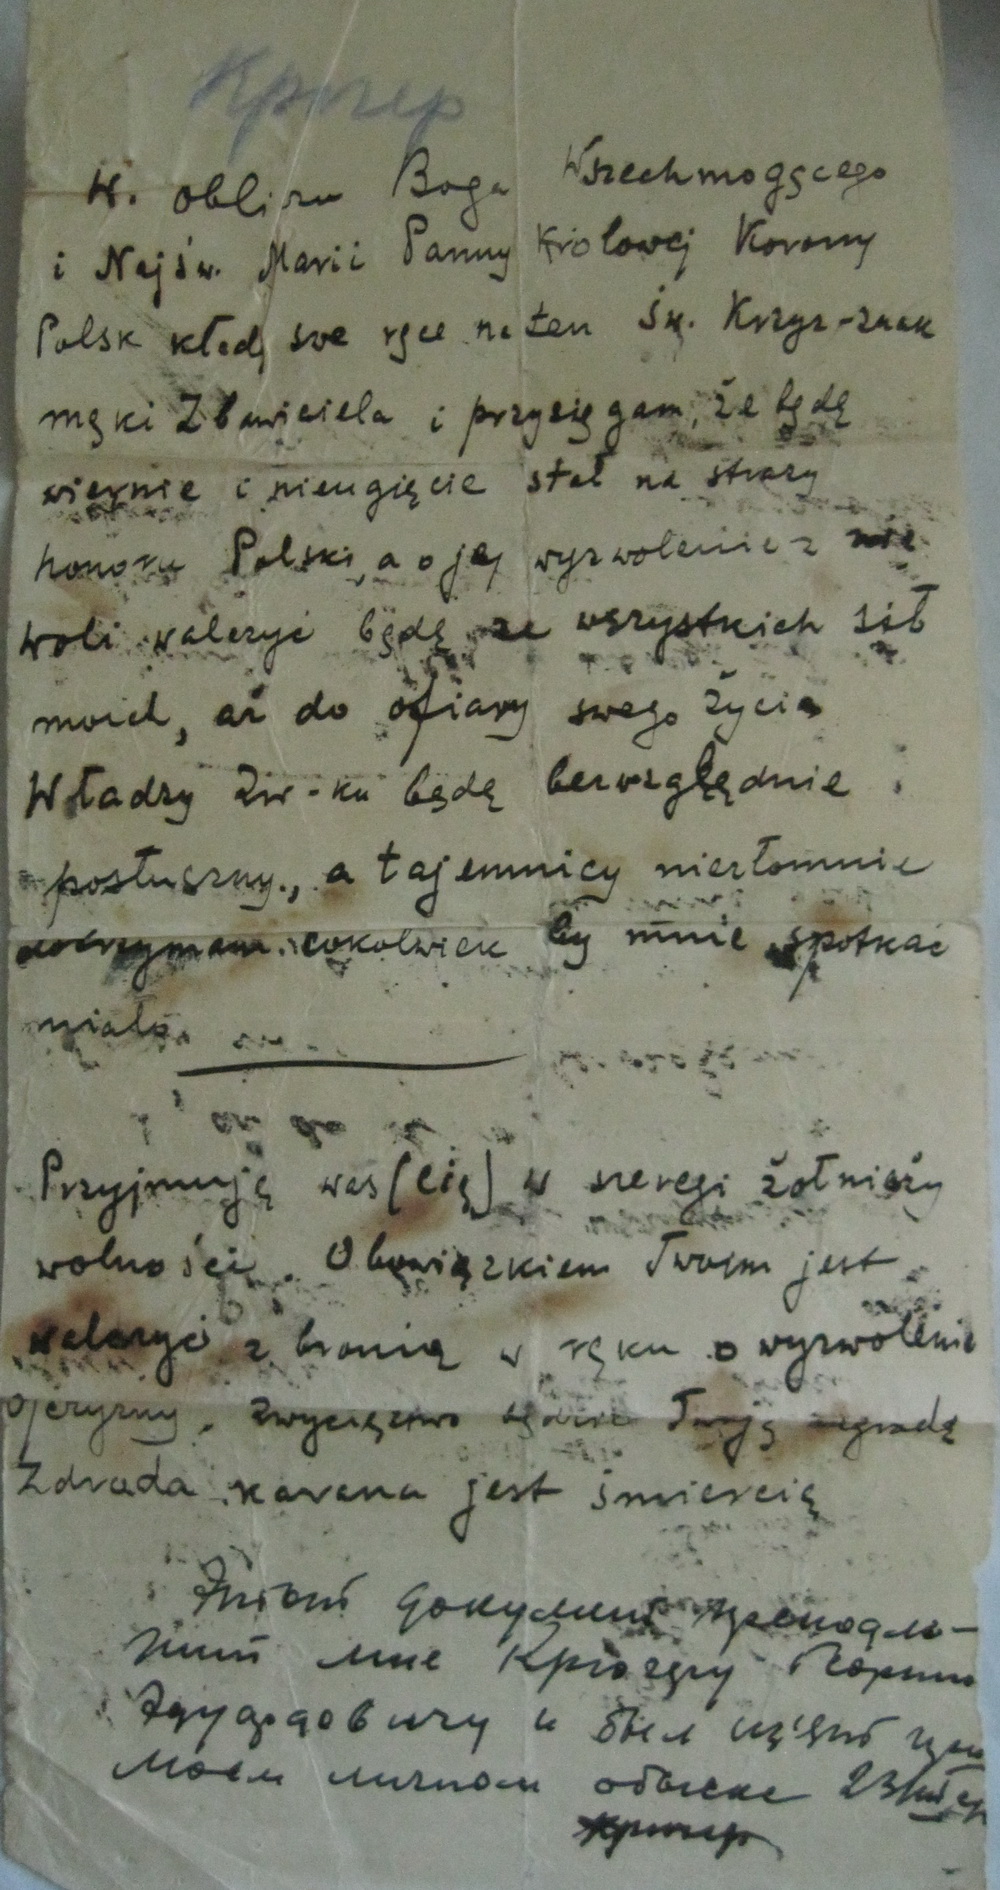 Крюгер
W. obliczu Boga Wszechmogącego
i Najśw. Marii Panny Królowej Korony
Polsk kładę swe ręce na ten św. Krzyż-znak
męki Zbawiciela i przysięgam, że będę
wiernie i nieugięcie stał na straży
honoru Polski, a o jej wyzwolenie z nie
woli walczyć będę ze wszystkich sił
moich, aż do ofiary swego życia
Władzy Zw-ku będę bezwzględnie
posłuszny., a tajemnicy niezłomnie
dotrzymam cokolwiek by mnie spotkać
miało.
Przyjmuję was (cię) w szeregi żołnieży
wolności. Obowiązkiem Twoim jest
walczyć z bronią w ręku o wyzwolenie
Ojczyzny. zwycięstwo będzie Twoją nagrodą
Zdrada karana jest śmiercią
Этот документ принадле-
жит мне Крюгеру
Эдуардовичу и был изъят при
моем личном обыске 23
Крюгер